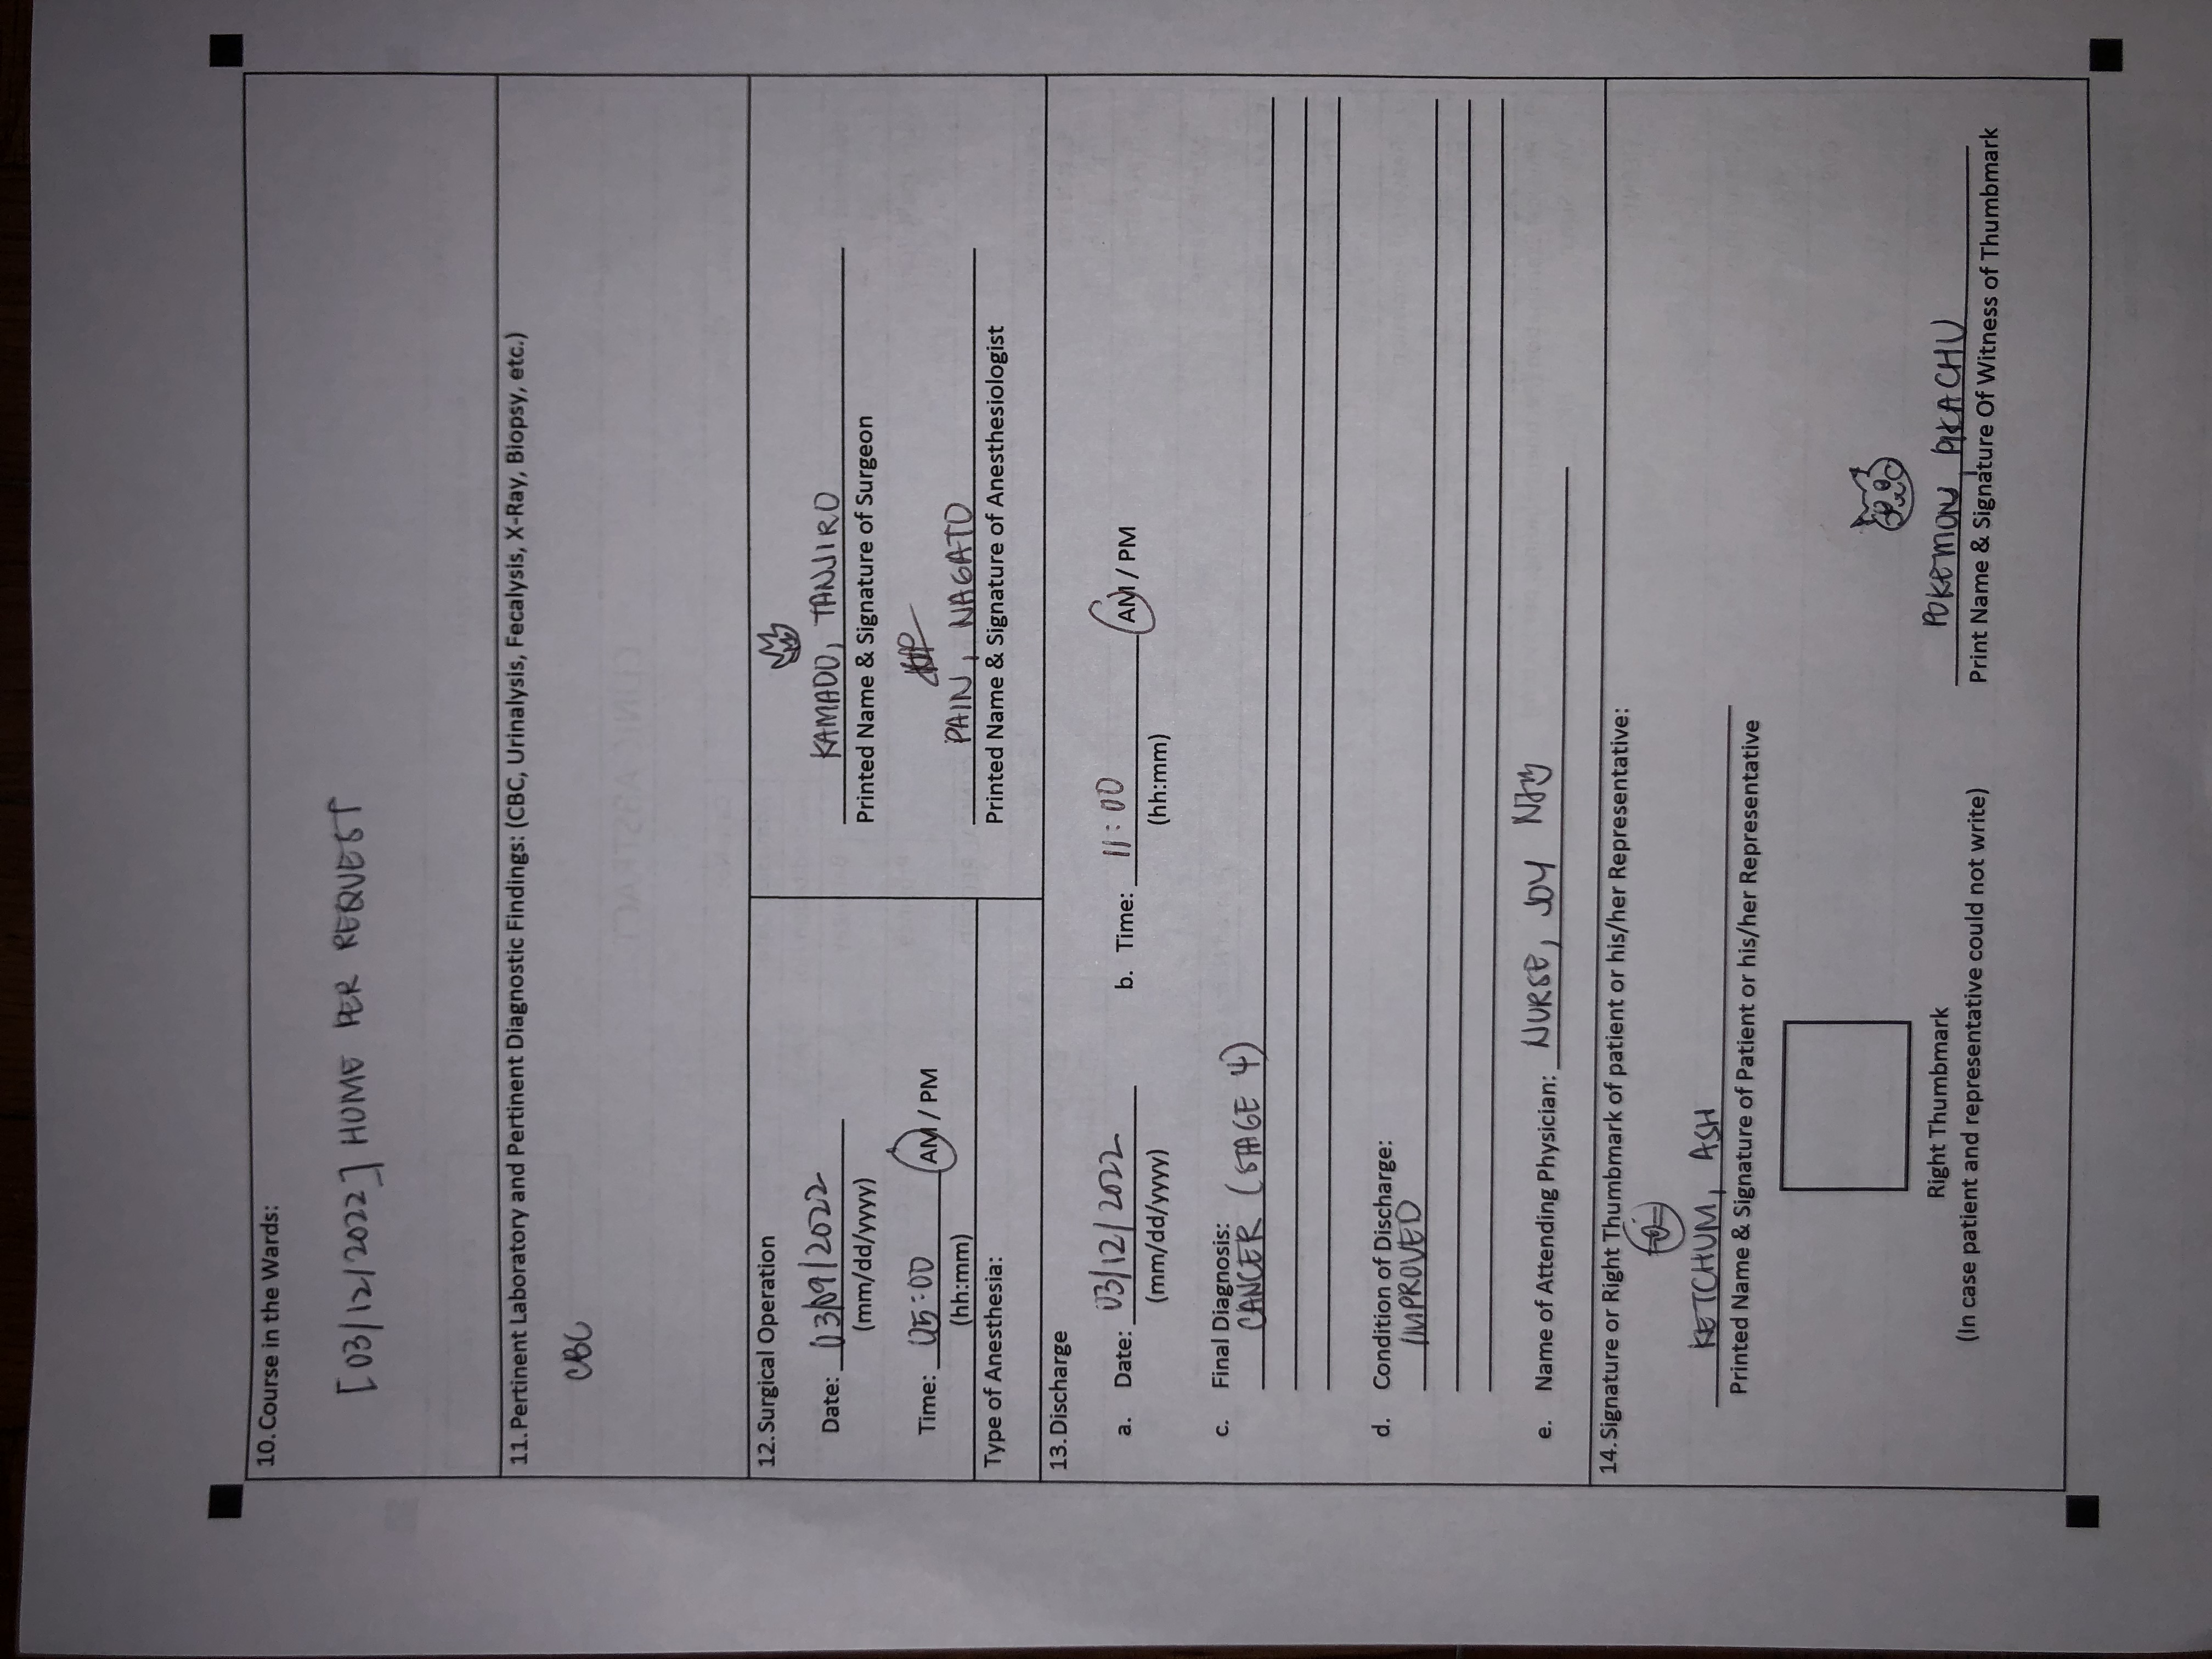 10. Course in the Wards:
[03/12/2022] HOME PER REQUEST
11. Pertinent Laboratory and Pertinent Diagnostic Findings: (CBC, Urinalysis, Fecalysis, X-Ray, Biopsy, etc.)
CBC
12. Surgical Operation
Date: 03/09/2022
(mm/dd/yyyy)
Time: 05:00 AM / PM
(hh:mm)
Type of Anesthesia:
KAMADO, TANJIRO
Printed Name & Signature of Surgeon
PAIN, NAGATO
Printed Name & Signature of Anesthesiologist
13. Discharge
a. Date: 03/12/2022 b. Time: 11:00 AM / PM
(mm/dd/yyyy) (hh:mm)
c. Final Diagnosis:
CANCER (STAGE 4)
d. Condition of Discharge:
IMPROVED
e. Name of Attending Physician: NURSE, JOY
14. Signature or Right Thumbmark of patient or his/her Representative:
KETCHUM, ASH
Printed Name & Signature of Patient or his/her Representative
Right Thumbmark
(In case patient and representative could not write)
POKEMON, PIKACHU
Print Name & Signature Of Witness of Thumbmark